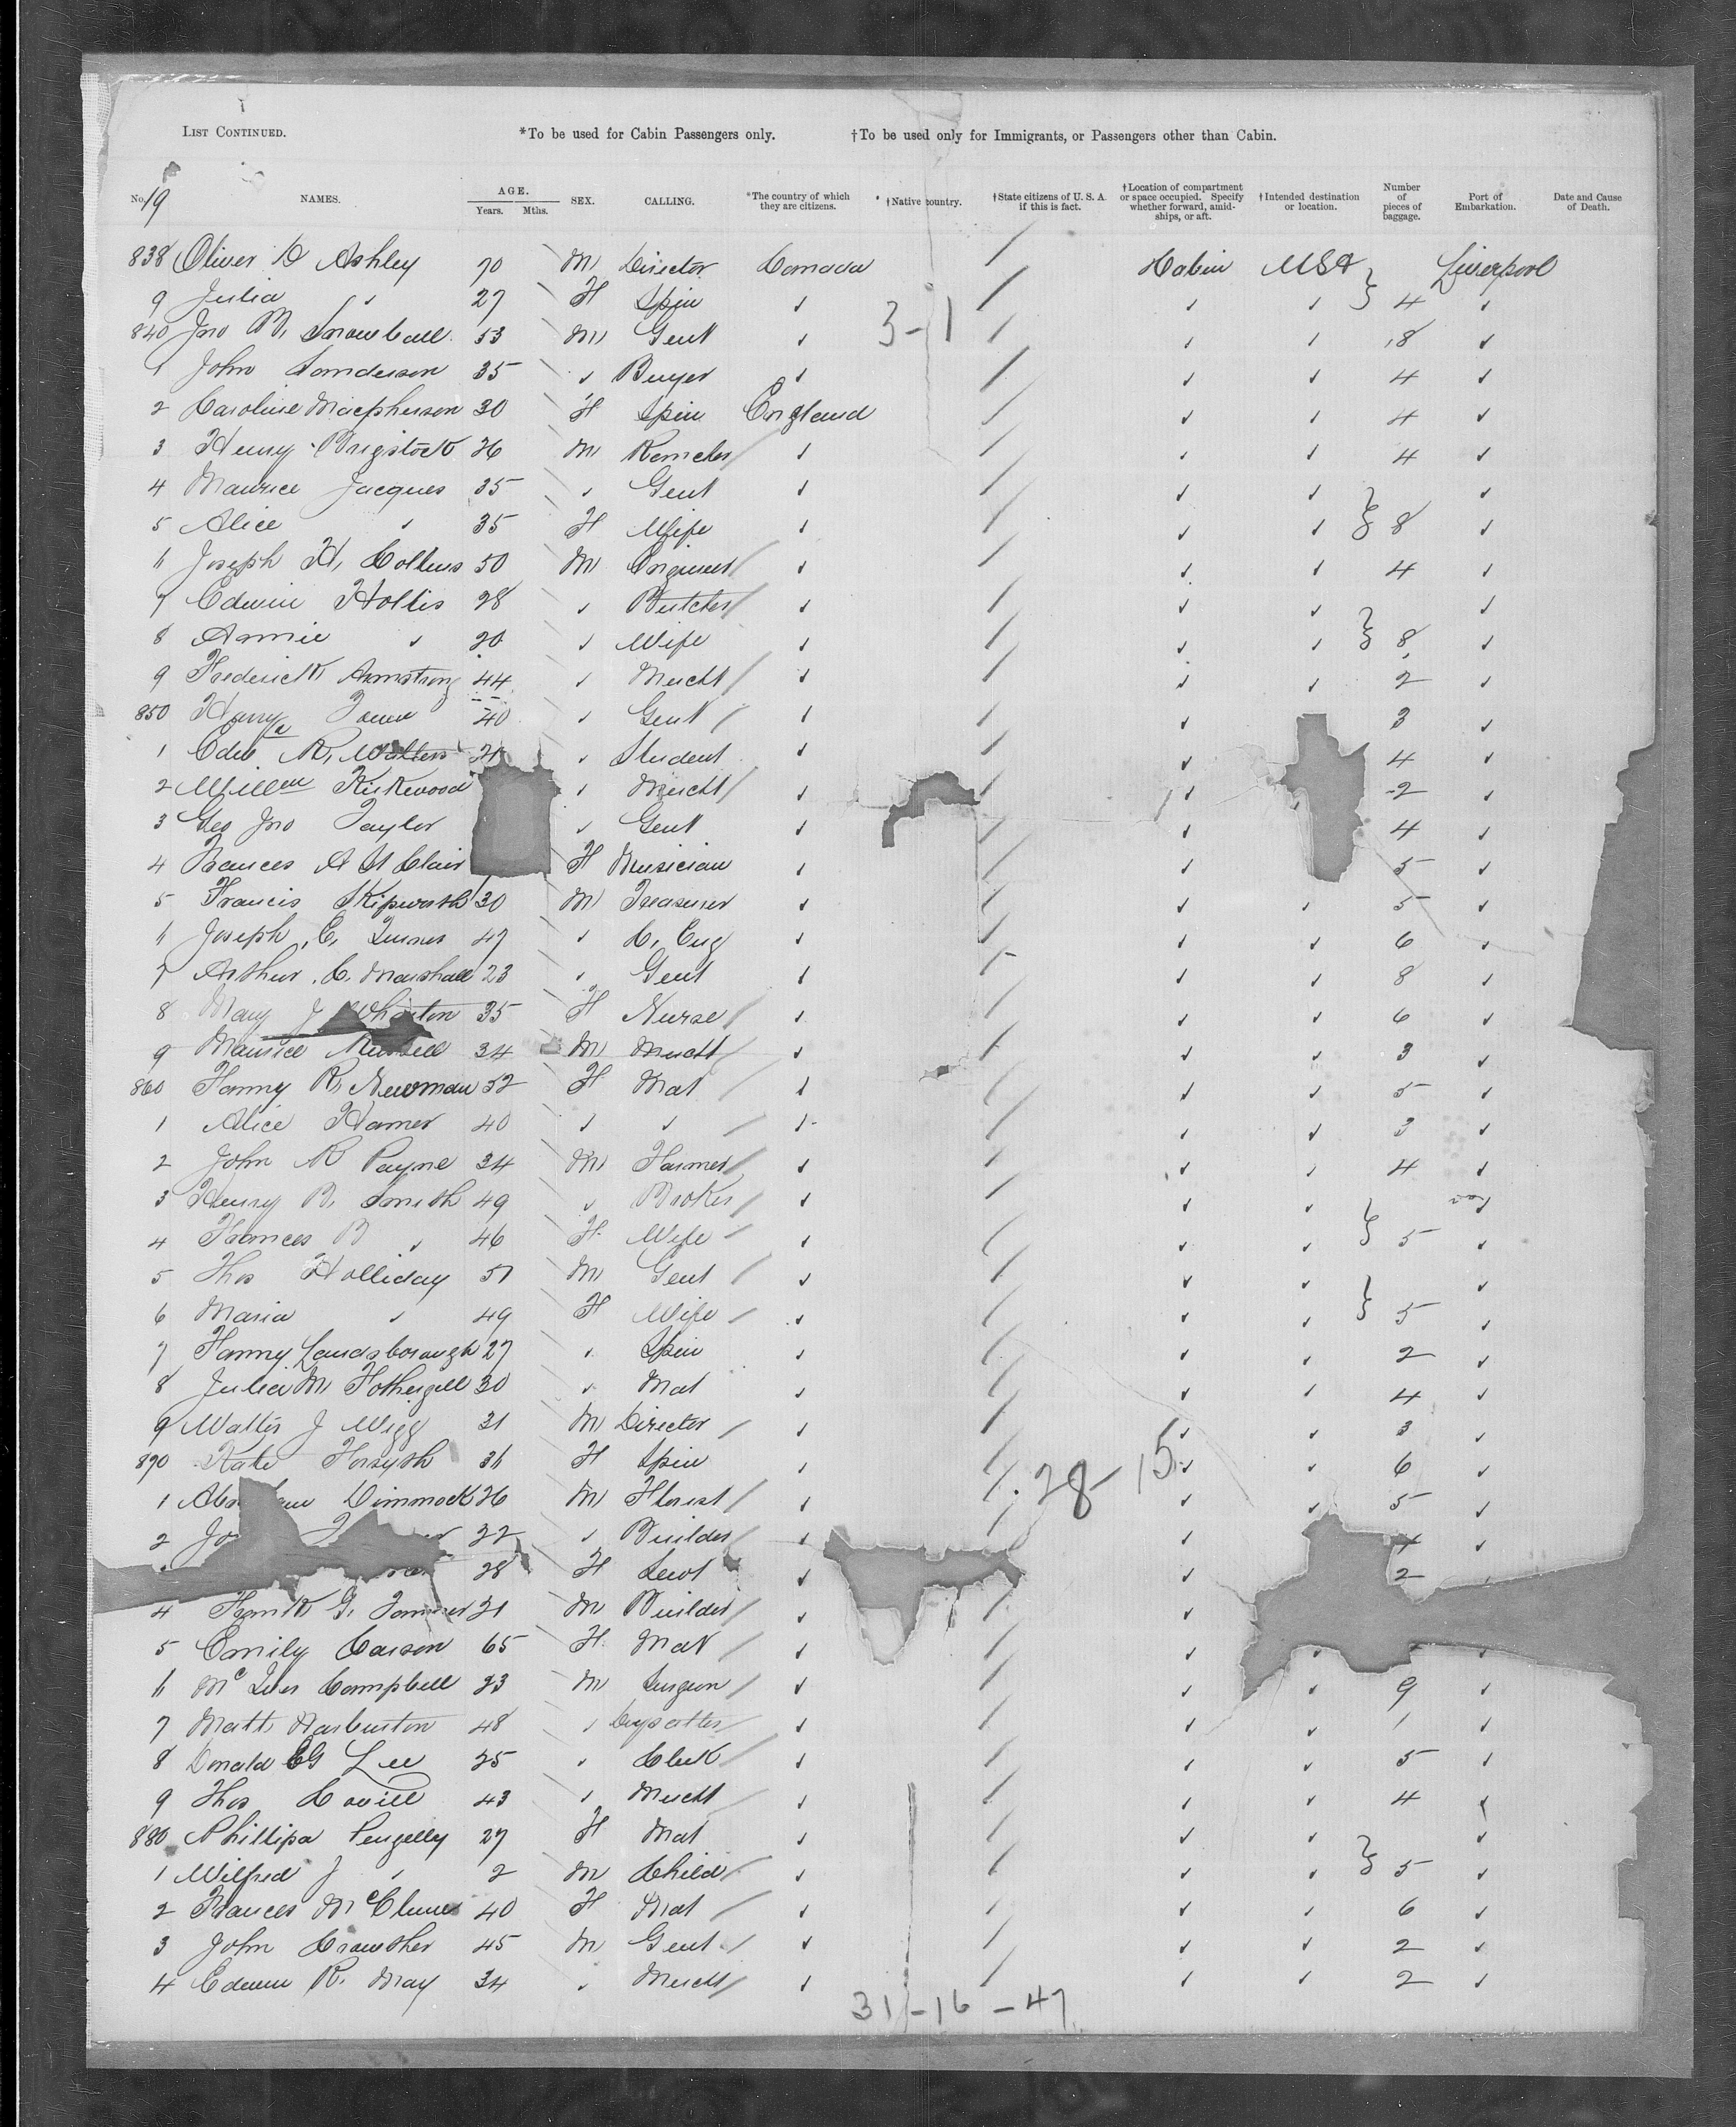 LIST CONTINUED. *To be used for Cabin Passengers only. †To be used only for Immigrants, or Passengers other than Cabin.
No. 19 NAMES. AGE. Years. Mths. SEX. CALLING. *The country of which they are citizens. †Native country. †State citizens of U. S. A. if this is fact. †Location of compartment or space occupied. Specify whether forward, amidships, or aft. †Intended destination or location. Number of pieces of baggage. Port of Embarkation. Date and Cause of Death.
838 Oliver D Ashley 70 M Director Canada Cabin USA Liverpool
9 Julia " 27 F Spin " " " 4 "
840 Jno B. Snowball 53 M Gent " 3-1 " " 8 "
1 John Sanderson 35 " Buyer " " " 4 "
2 Caroline Macpherson 30 F Spin England " " 4 "
3 Henry Brigstock 26 M " " " 4 "
4 Maurice Jacques 35 " Gent " " " "
5 Alice " 35 F Wife " " " 8 "
6 Joseph H. Collins 50 M Engineer " " " 4 "
7 Edwin Hollis 28 " Butcher " " " "
8 Annie " 20 " Wife " " " 8 "
9 Frederick Armstrong 44 " Mercht " " " 2 "
850 Harry 40 " Gent " " 3 "
1 R. Walters " Student " " 4 "
2 Willm Kirkwood " Mercht " " " 2 "
3 Geo Jno Taylor " Gent " " 4 "
4 Frances A St Clair F Musician " " 5 "
5 Francis Skipworth 30 M Treasurer " " " 5 "
6 Joseph C. Turner 47 " C. Eng " " " 6 "
7 Arthur C. Marshall 23 " Gent " " " 8 "
8 Mary J Wharton 35 F Nurse " " " 6 "
9 Maurice 34 M Mercht " " " 3 "
860 Fanny R. Newman 52 F Mat " " " 5 "
1 Alice Hamer 40 " " " " " 3 "
2 John R Payne 34 M Farmer " " " 4 "
3 Henry B. Smith 49 " Broker " " "
4 Frances B " 46 F Wife " " " 5 "
5 Thos Holliday 51 M Gent " " " "
6 Maria " 49 F Wife " " " 5 "
7 Fanny Landsborough 27 " Spin " " " 2 "
8 Julia M Fothergill 30 " Mat " " " 4 "
9 Walter J Wigg 31 M Director " " " 3 "
870 Kate Forsyth 36 F Spin " 28-15 " " 6 "
1 Dimmock 26 M Florist " " " 5 "
2 22 " Builder " " "
28 F " " 2
4 Frank G. 21 M Builder " "
5 Emily Carson 65 F Mat " " " "
6 McIver Campbell 23 M Surgeon " " " 9 "
7 Matt Warburton 48 " " " " 1 "
8 Donald Lee 25 " Clerk " " " 5 "
9 Thos Covill 43 " Mercht " " " 4 "
880 Phillipa Pengelly 27 F Mat " " " "
1 Wilfred J " 2 M Child " " " 5 "
2 Frances McClune 40 F Mat " " " 6 "
3 John Crowther 45 M Gent " " " 2 "
4 Edwin R. May 34 " Mercht " " " 2 "
31-16-47